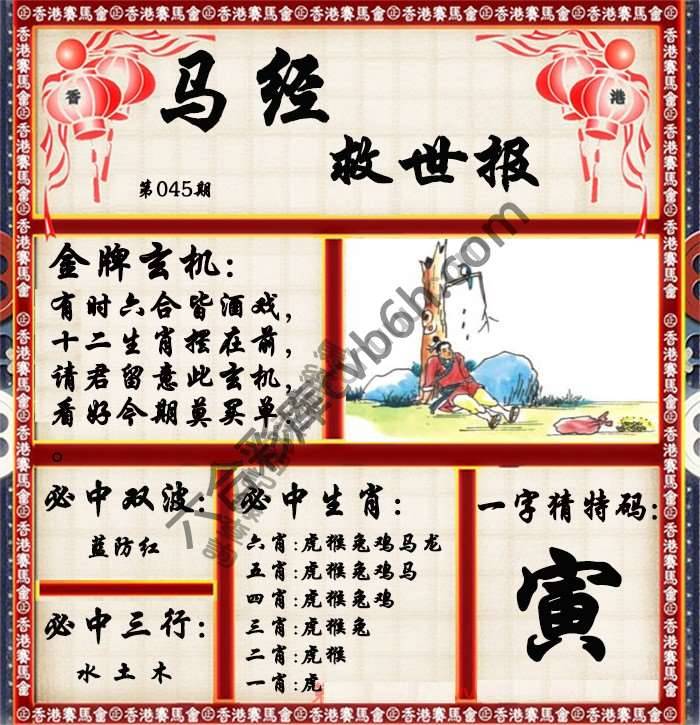 香港賽馬會
香
港
马经
救世报
第045期
金牌玄机：
有时六合皆酒戏，
十二生肖摆在前，
请君留意此玄机，
看好今期莫买单.
。
必中双波：
蓝防红
必中三行：
水土木
必中生肖：
六肖：虎猴兔鸡马龙
五肖：虎猴兔鸡马
四肖：虎猴兔鸡
三肖：虎猴兔
二肖：虎猴
一肖：虎
一字猜特码：
寅
六合彩库cvb6h.com